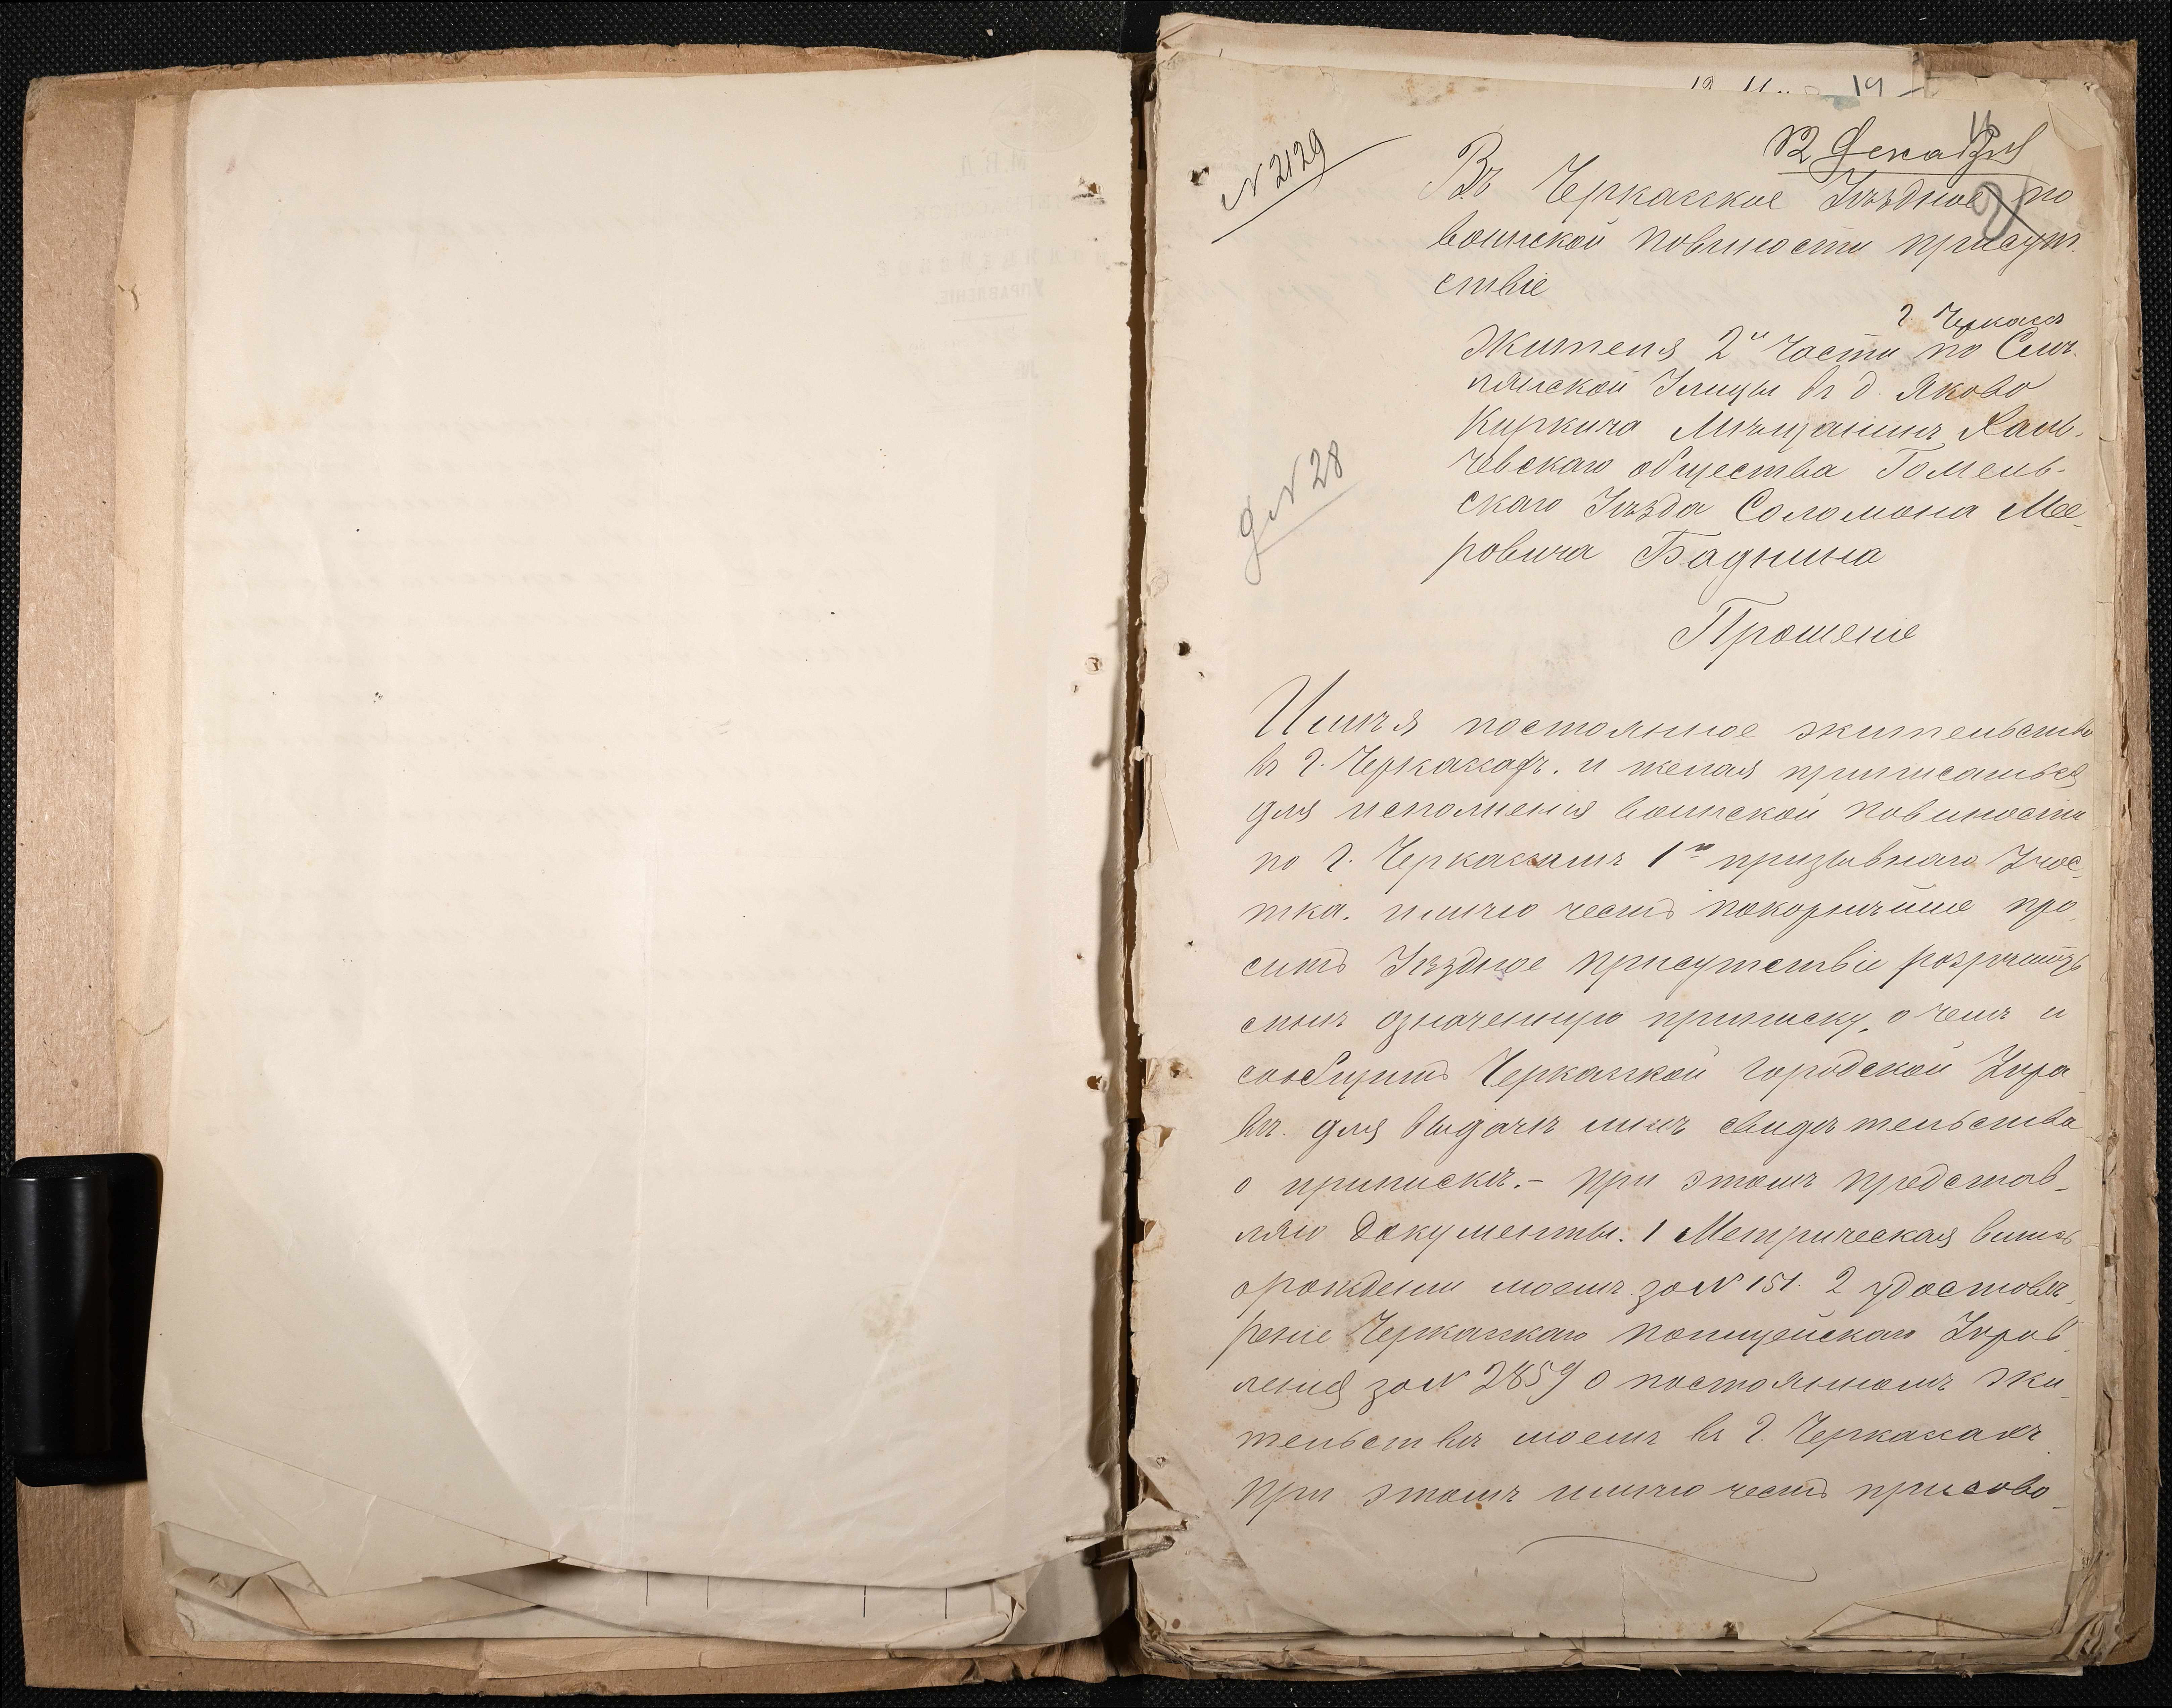 12 Декабря
N 2129
Въ Черкасское Уѣздное по
воинской повиности присут
ствіе
г. Черкасъ
Жителя 2й Части по Смѣ
лянской Улицы въ д. Якова
Киркина Мѣщанинъ
чевскаго общества Гомель-
скаго Уѣзда Соломона Мее-
ровича Баднина
N 28
Прошеніе
Имѣя постоянное жительство
въ г. Черкасахъ. и желая приписаться
для исполненія воинской повиности
по г. Черкассамъ 1го призывнаго Учас
тка. имѣю честь покорнѣйше про
сить Уѣздное присутствіе розрѣшить
мнѣ означенную приписку, о чемъ и
сообщить Черкасской городской Упра
вѣ. для выдачи мнѣ свидѣтельства
о припискѣ. – При этомъ представ-
ляю документы. 1 Метрическая выпись
о рождении моемъ за N 151. 2 удостовѣ
реніе Черкасскаго полицейскаго Управ
ленія за N 2859 о постоянномъ жи-
тельствѣ моемъ въ г. Черкассахъ
При этомъ имѣю честь присово-